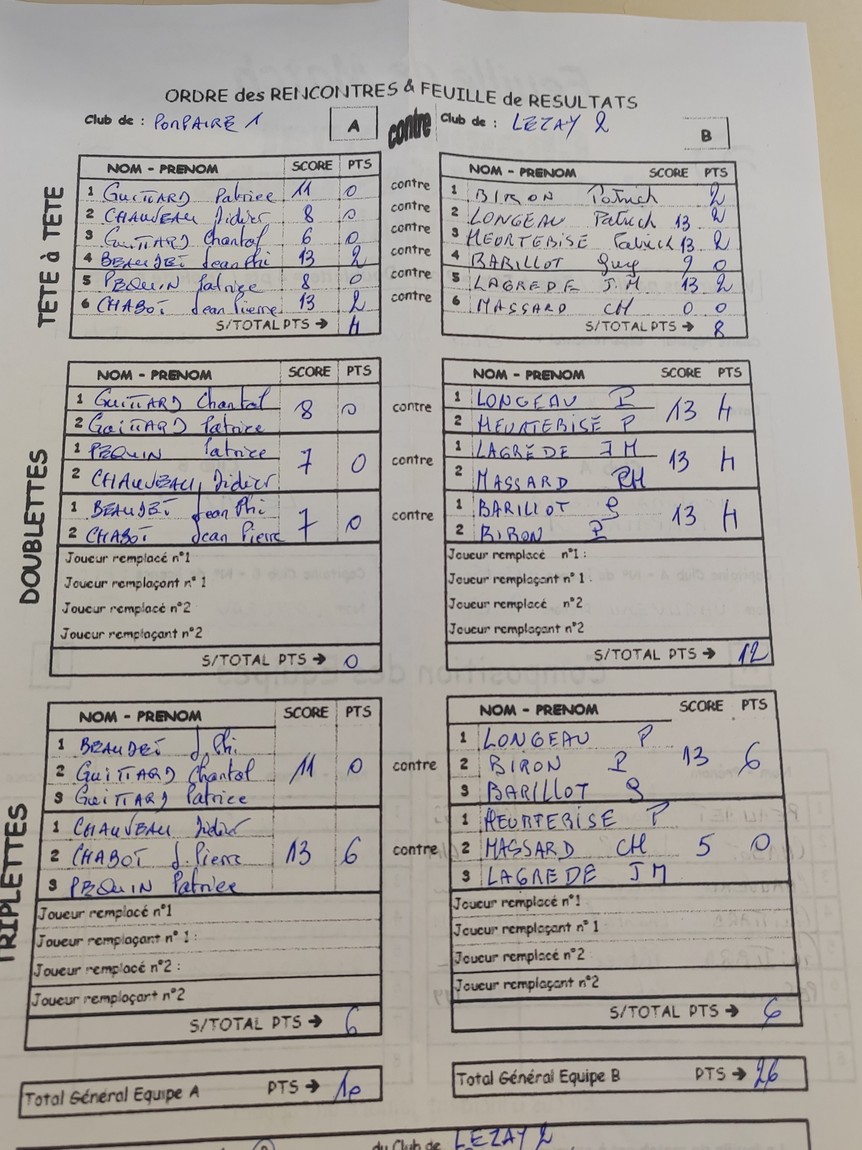 ORDRE des RENCONTRES & FEUILLE de RESULTATS
Club de : POMPAIRE 1 A contre Club de : LEZAY 2 B
TETE à TETE
NOM - PRENOM SCORE PTS NOM - PRENOM SCORE PTS
1 GUITTARD Patrice 11 0 contre 1 BIRON Patrick 2
2 CHAUVEAU Didier 8 0 contre 2 LONGEAU Patrick 13 2
3 GUITTARD Chantal 6 0 contre 3 HEURTEBISE Patrick 13 2
4 BEAUDET Jean Phi 13 2 contre 4 BARILLOT Guy 9 0
5 PEQUIN Patrice 8 0 contre 5 LAGREDE J M 13 2
6 CHABOT Jean Pierre 13 2 contre 6 MASSARD CH 0 0
S/TOTAL PTS → 4 S/TOTAL PTS → 8
DOUBLETTES
NOM - PRENOM SCORE PTS NOM - PRENOM SCORE PTS
1 GUITTARD Chantal 8 0 contre 1 LONGEAU P 13 4
2 GUITTARD Patrice 2 HEURTEBISE P
1 PEQUIN Patrice 7 0 contre 1 LAGREDE J M 13 4
2 CHAUVEAU Didier 2 MASSARD CH
1 BEAUDET Jean Phi 7 0 contre 1 BARILLOT G 13 4
2 CHABOT Jean Pierre 2 BIRON P
Joueur remplacé n°1 Joueur remplacé n°1 :
Joueur remplaçant n° 1 Joueur remplaçant n° 1 :
Joueur remplacé n°2 Joueur remplacé n°2
Joueur remplaçant n°2 Joueur remplaçant n°2
S/TOTAL PTS → 0 S/TOTAL PTS → 12
TRIPLETTES
NOM - PRENOM SCORE PTS NOM - PRENOM SCORE PTS
1 BEAUDET J.Phi 1 LONGEAU P
2 GUITTARD Chantal 11 0 contre 2 BIRON P 13 6
3 GUITTARD Patrice 3 BARILLOT G
1 CHAUVEAU Didier 1 HEURTEBISE P
2 CHABOT J.Pierre 13 6 contre 2 MASSARD CH 5 0
3 PEQUIN Patrice 3 LAGREDE J M
Joueur remplacé n°1 Joueur remplacé n°1
Joueur remplaçant n° 1 : Joueur remplaçant n° 1
Joueur remplacé n°2 : Joueur remplacé n°2
Joueur remplaçant n°2 Joueur remplaçant n°2
S/TOTAL PTS → 6 S/TOTAL PTS → 6
Total Général Equipe A PTS → 10 Total Général Equipe B PTS → 26
du Club de LEZAY 2